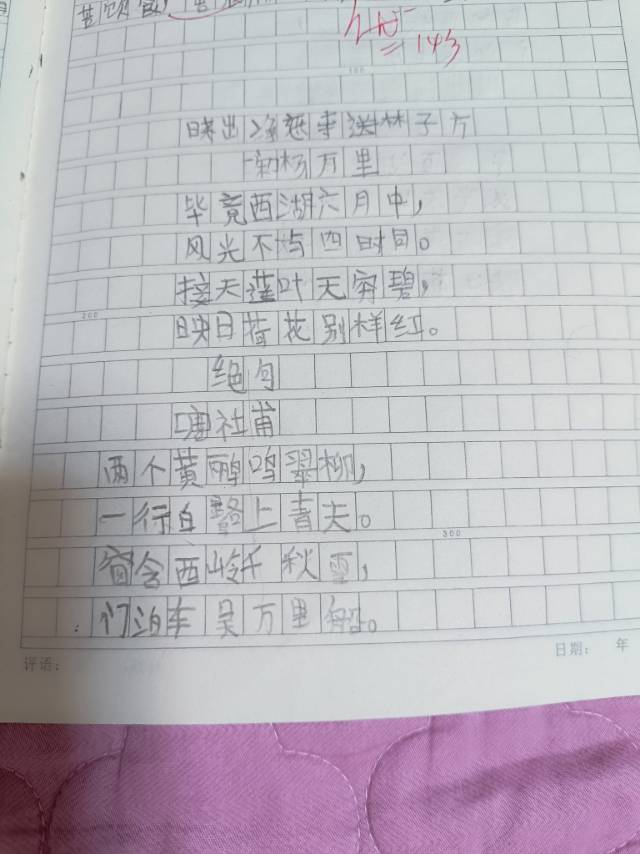 =143
映出净慈寺送林子方
杨万里
毕竟西湖六月中,
风光不与四时同。
接天莲叶无穷碧,
映日荷花别样红。
绝句
唐杜甫
两个黄鹂鸣翠柳,
一行白鹭上青夫。
窗含西岭千秋雪,
门泊车吴万里船。
300
评语:
日期: 年